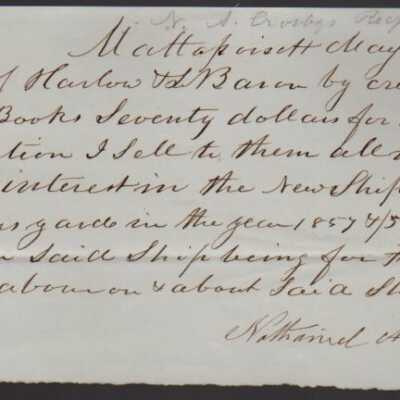 N. A. Crosbys Rec
Mattapoisett May
f Harlow & L Baron by cre
Books Seventy dollars for
tion I Sell to them all
interest in the New Ship
s yards in the year 1857 &/5
n Said Ship being for th
abour on & about Said Sh
Nathaniel A